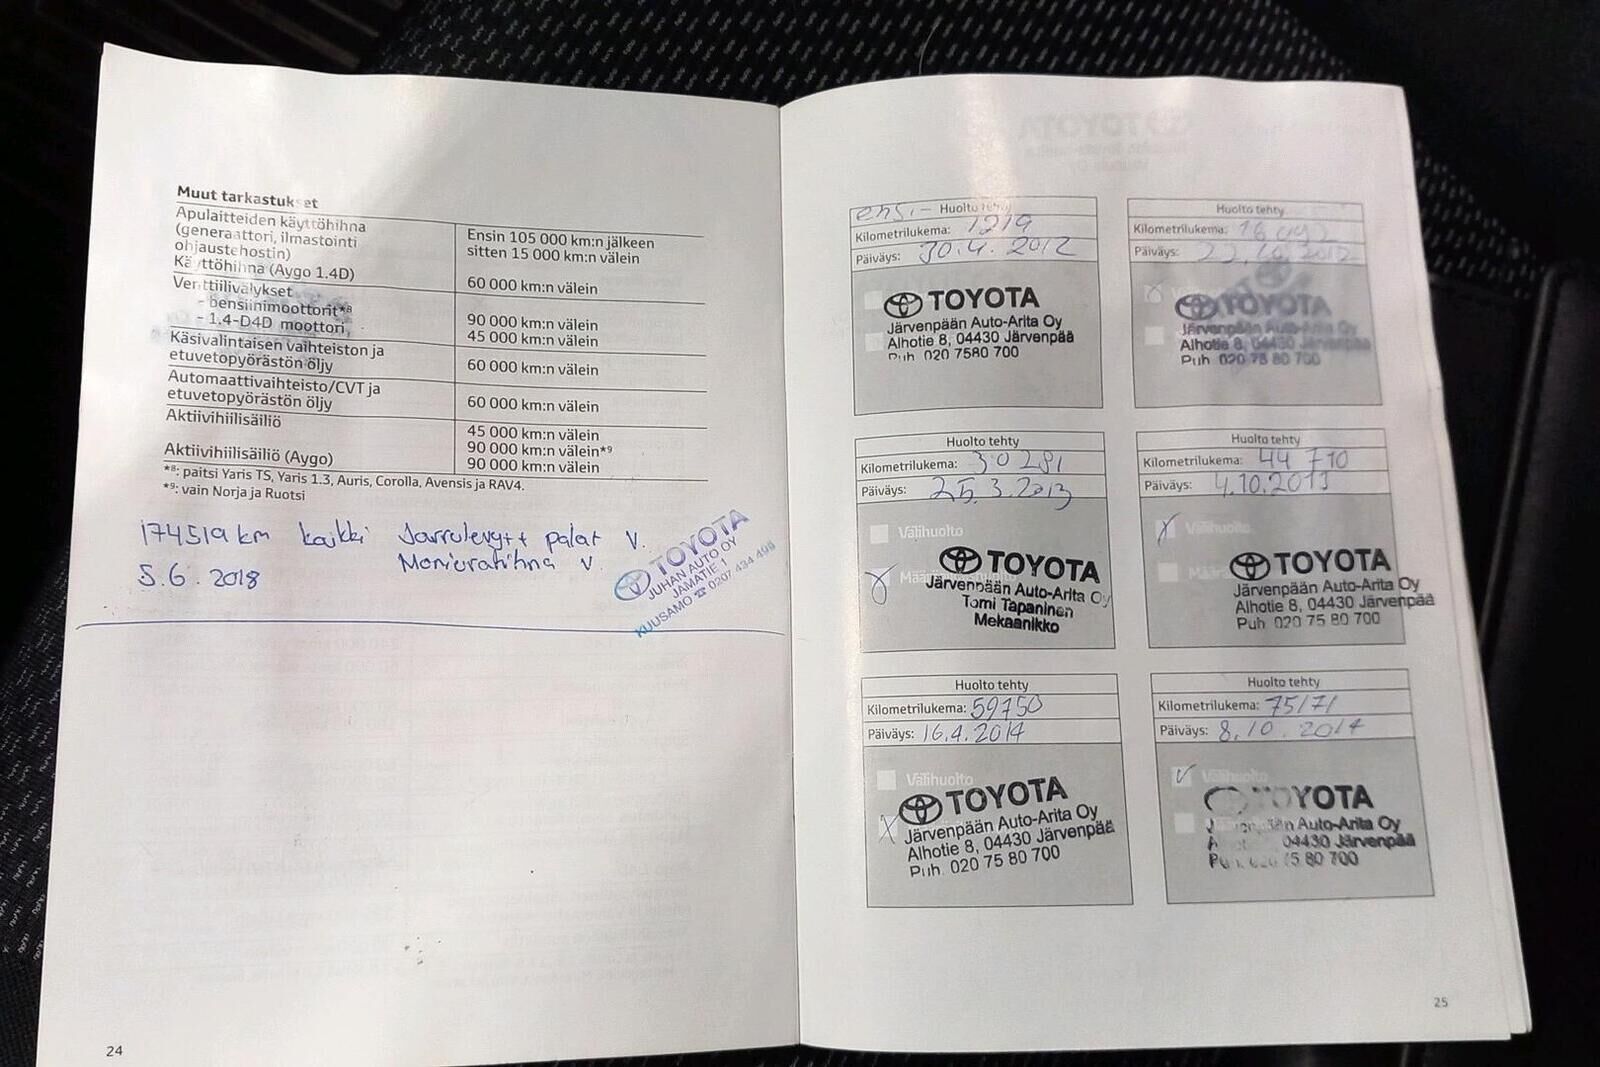 Muut tarkastukset
Apulaitteiden käyttöhihna
(generaattori, ilmastointi
ohjaustehostin)
Ensin 105 000 km:n jälkeen
sitten 15 000 km:n välein
Käyttöhihna (Aygo 1.4D)
60 000 km:n välein
Venttiilivälykset
- bensiinimoottorit*8
90 000 km:n välein
- 1.4-D4D moottori
45 000 km:n välein
Käsivalintaisen vaihteiston ja
etuvetopyörästön öljy
60 000 km:n välein
Automaattivaihteisto/CVT ja
etuvetopyörästön öljy
60 000 km:n välein
Aktiivihiilisäiliö
45 000 km:n välein
90 000 km:n välein*9
Aktiivihiilisäiliö (Aygo)
90 000 km:n välein
*8: paitsi Yaris TS, Yaris 1.3, Auris, Corolla, Avensis ja RAV4.
*9: vain Norja ja Ruotsi
174519 km kaikki Jarrulevyt+ palat V.
5.6.2018 Moniurahihna V.
TOYOTA
JUHAN AUTO OY
JÄMATIE 1
KUUSAMO ☎ 0207 434 499
24
ensi- Huolto tehty
Kilometrilukema: 1219
Päiväys: 30.4.2012
TOYOTA
Järvenpään Auto-Arita Oy
Alhotie 8, 04430 Järvenpää
Puh 020 7580 700
Huolto tehty
Kilometrilukema:
Päiväys:
TOYOTA
Järvenpään Auto-Arita Oy
Alhotie 8, 04430 Järvenpää
Puh 020 75 80 700
Huolto tehty
Kilometrilukema: 30281
Päiväys: 25.3.2013
Välihuolto
TOYOTA
Järvenpään Auto-Arita Oy
Tomi Tapaninen
Mekaanikko
Huolto tehty
Kilometrilukema: 44 710
Päiväys: 4.10.2013
Välihuolto
TOYOTA
Järvenpään Auto-Arita Oy
Alhotie 8, 04430 Järvenpää
Puh 020 75 80 700
Huolto tehty
Kilometrilukema: 59750
Päiväys: 16.4.2014
Välihuolto
TOYOTA
Järvenpään Auto-Arita Oy
Alhotie 8, 04430 Järvenpää
Puh. 020 75 80 700
Huolto tehty
Kilometrilukema: 75171
Päiväys: 8.10.2014
Välihuolto
TOYOTA
Järvenpään Auto-Arita Oy
04430 Järvenpää
Puh. 020 75 80 700
25